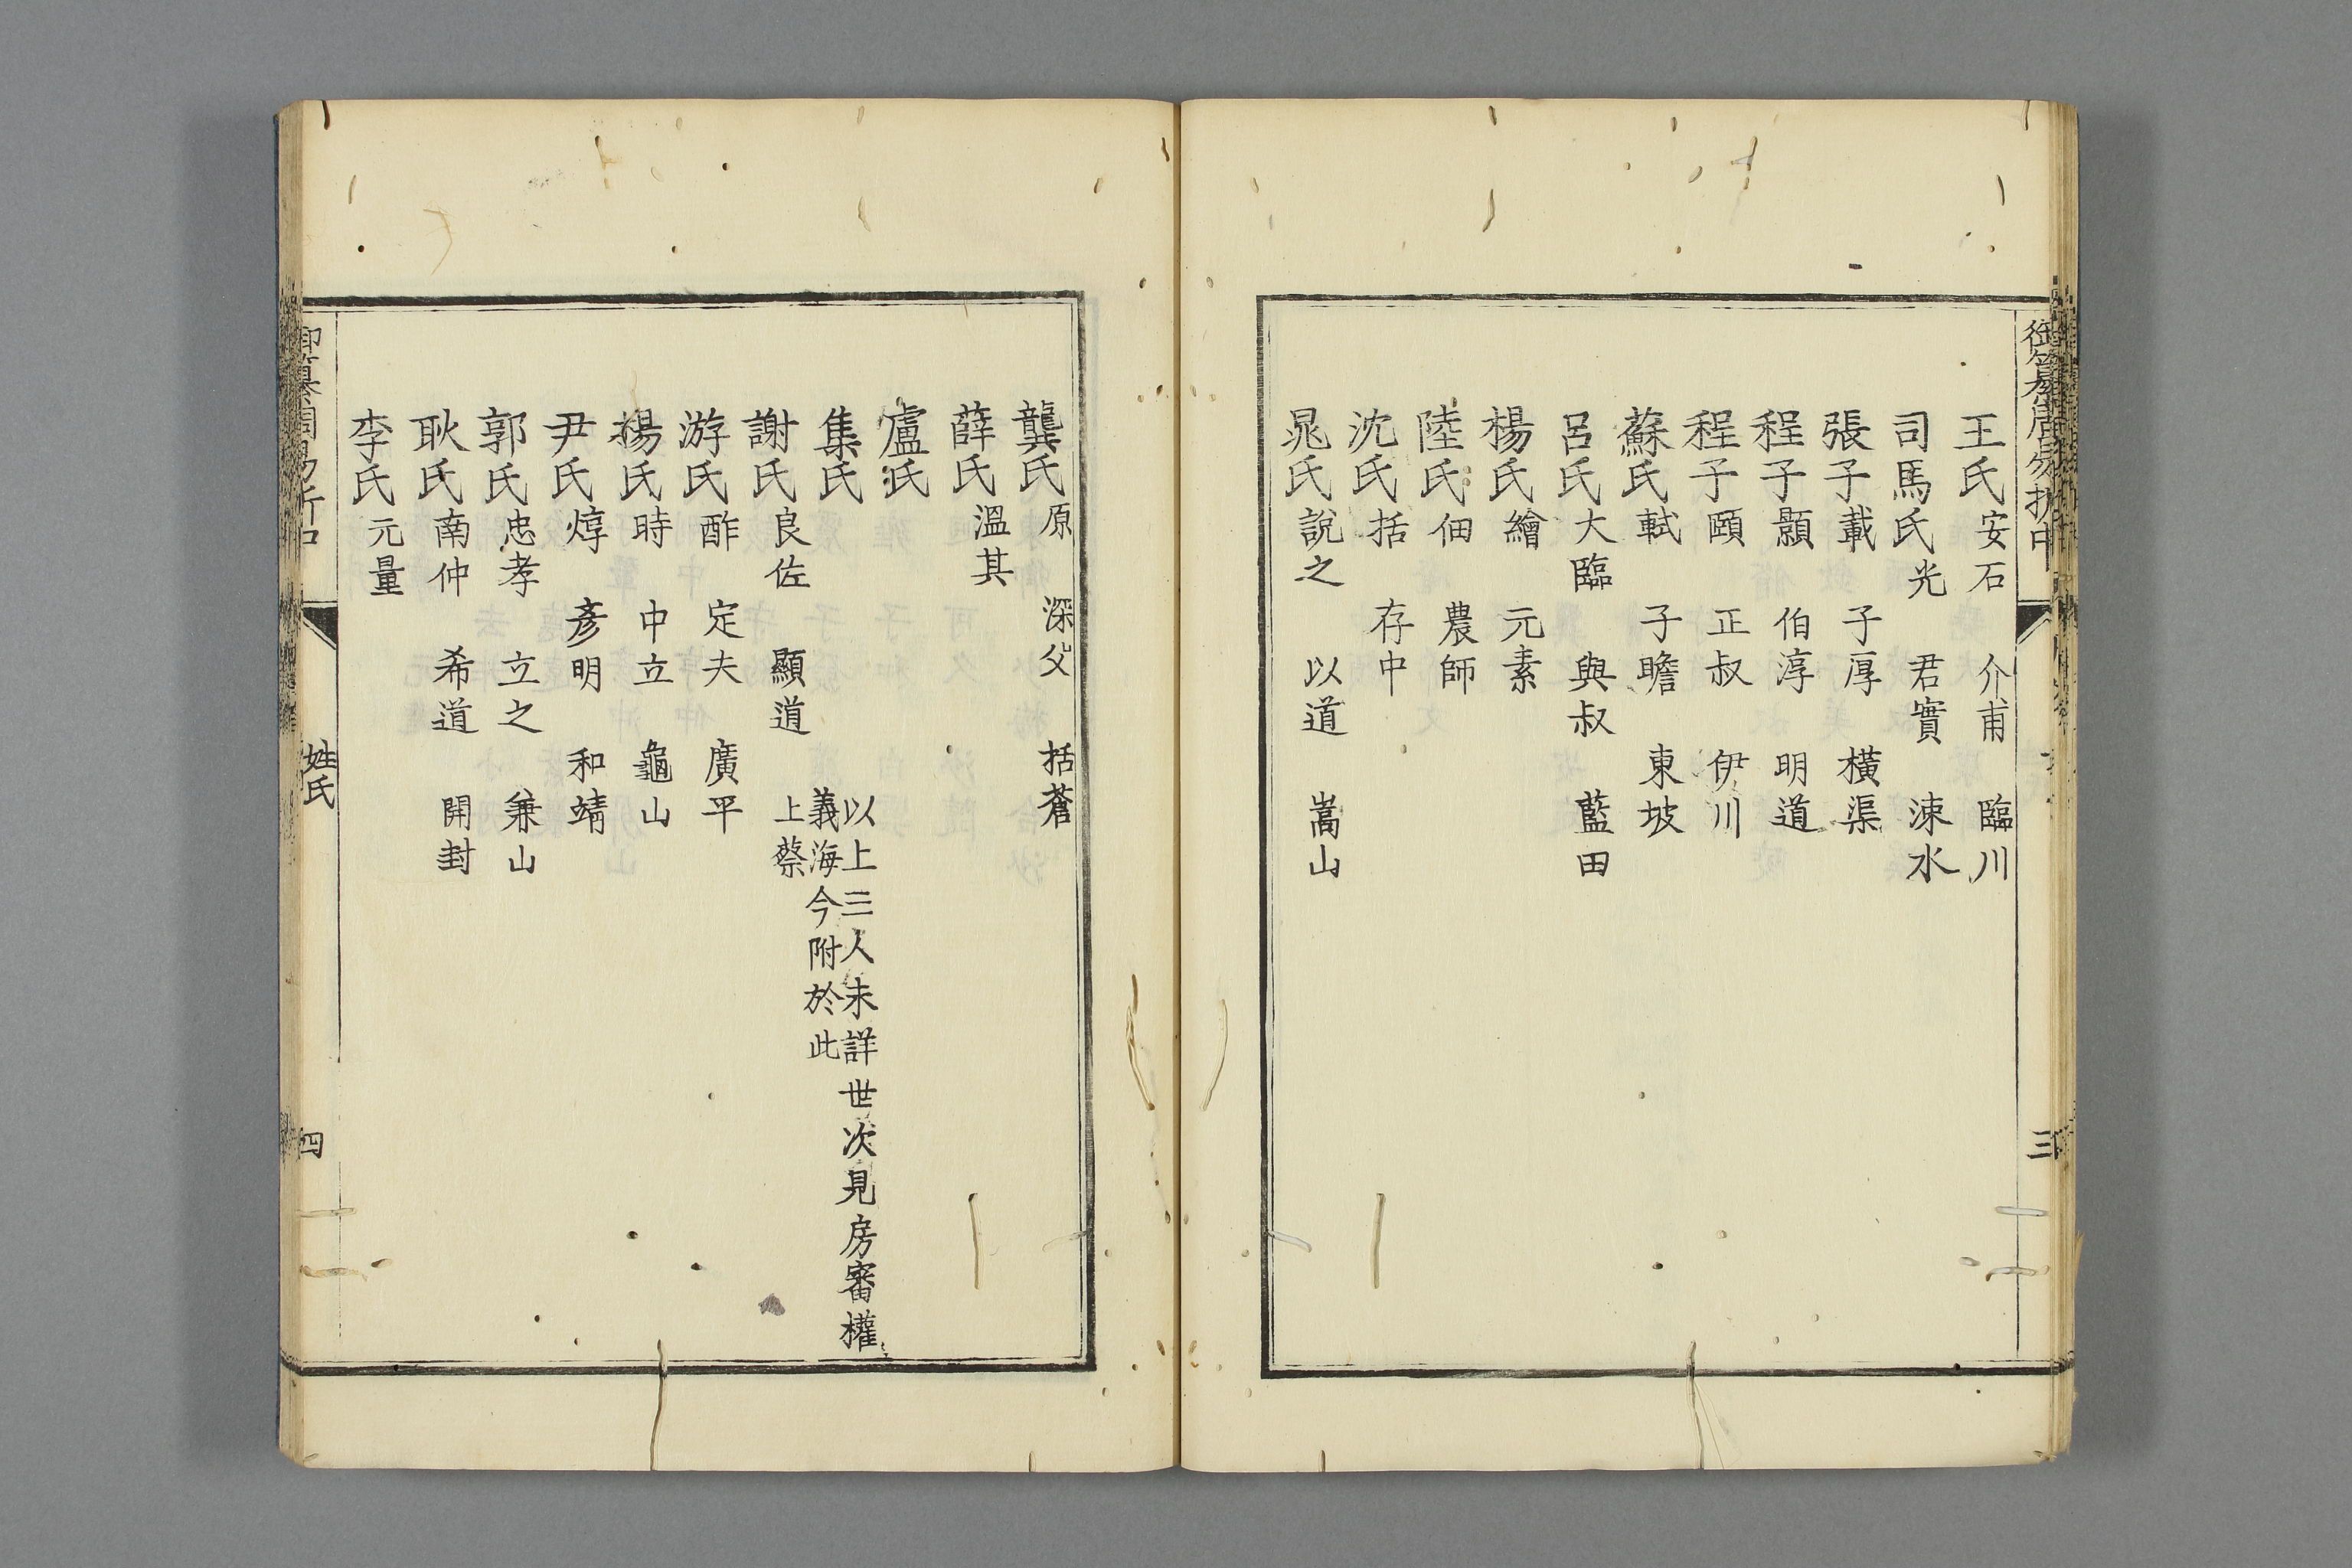 御纂周易折中
三
王氏安石 介甫 臨川
司馬氏光 君實 涑水
張子載 子厚 橫渠
程子顥 伯淳 明道
程子頤 正叔 伊川
蘇氏軾 子瞻 東坡
呂氏大臨 與叔 藍田
楊氏繪 元素
陸氏佃 農師
沈氏括 存中
晁氏說之 以道 嵩山
龔氏原 深父 括蒼
薛氏溫其
盧氏
集氏
以上三人未詳世次見房審權
義海今附於此
謝氏良佐 顯道 上蔡
游氏酢 定夫 廣平
楊氏時 中立 龜山
尹氏焞 彥明 和靖
郭氏忠孝 立之 兼山
耿氏南仲 希道 開封
李氏元量
御纂周易折中
姓氏
四